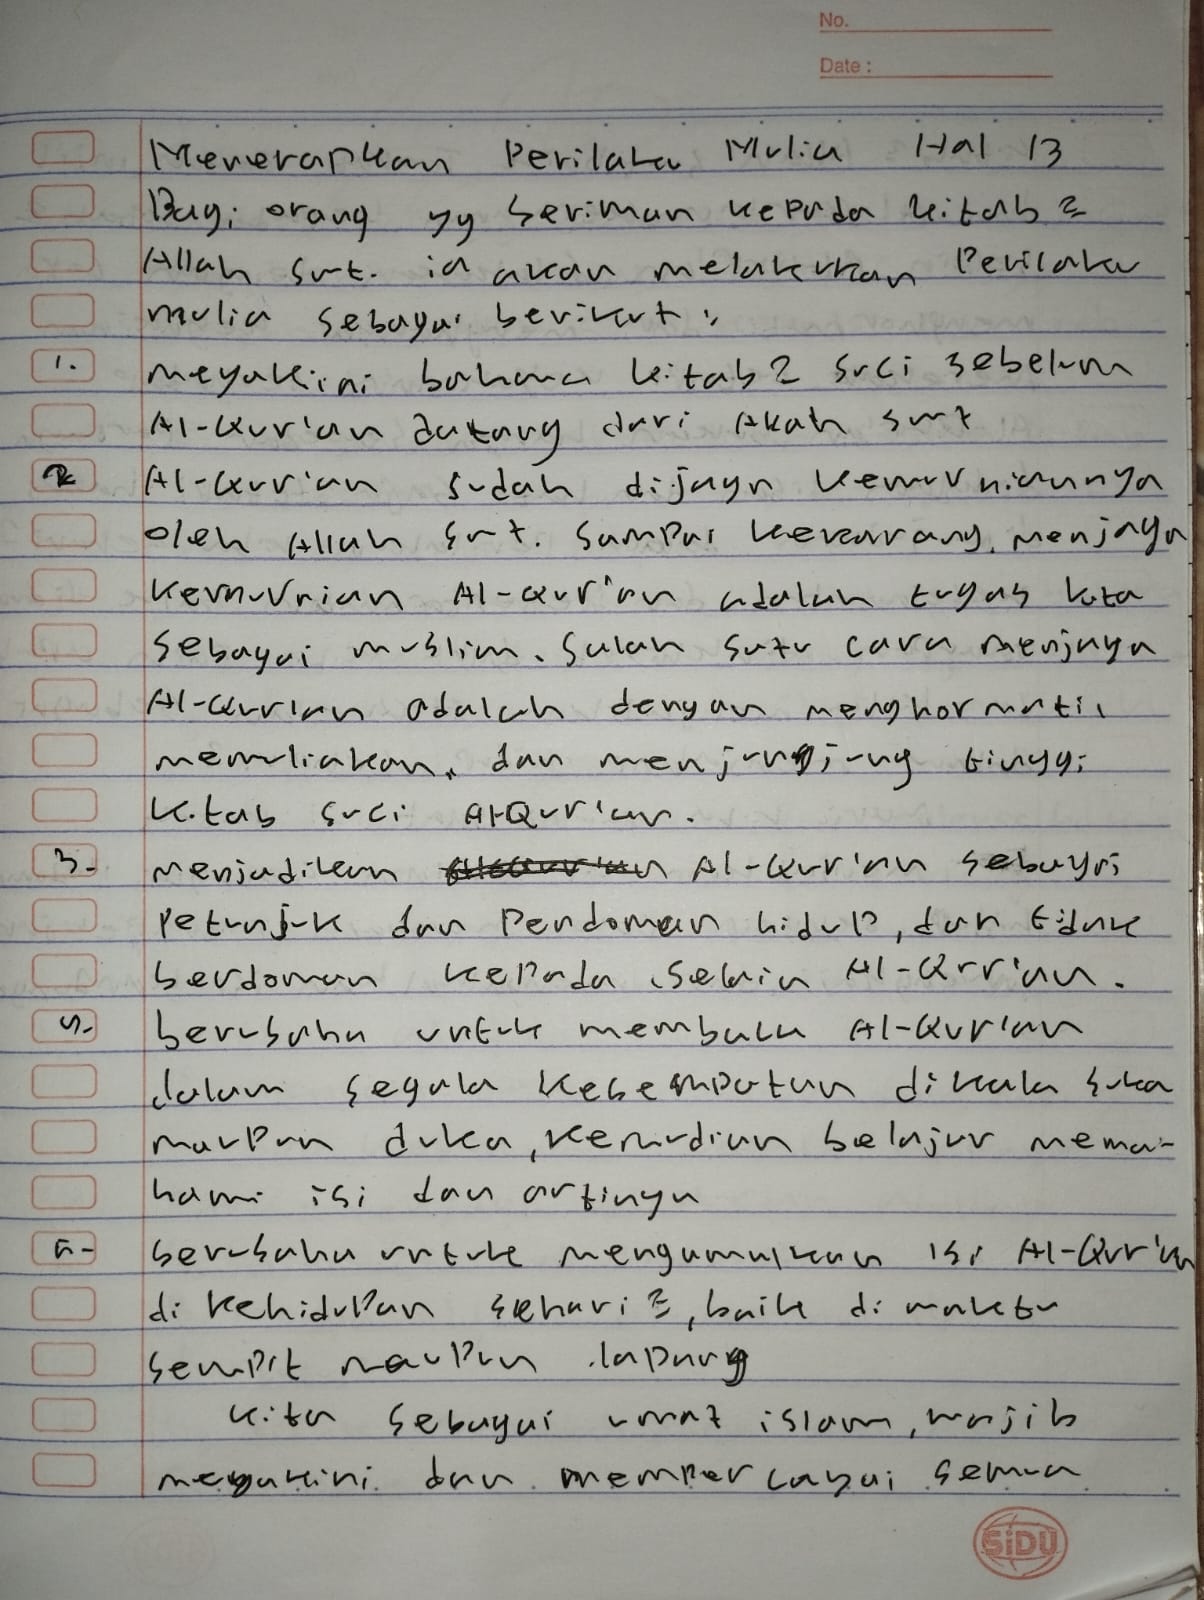 No.
Date :
Menerapkan Perilaku Mulia Hal 13
Bagi orang yg beriman kepada kitab2
Allah swt. ia akan melakukan Perilaku
mulia sebagai berikut :
1. meyakini bahwa kitab2 suci sebelum
Al-Qur'an datang dari Allah swt
2. Al-Qur'an sudah dijaga kemurniannya
oleh Allah swt. sampai kekarang, menjaga
kemurnian Al-Qur'an adalah tugas kita
sebagai muslim. Salah satu cara menjaga
Al-Qur'an adalah dengan menghormati,
memuliakan, dan menjungjung tinggi
kitab suci Al-Qur'an.
3. menjadikan Al-Qur'an sebagai
Petunjuk dan Pendoman hidup, dan tidak
berdoman kepada selain Al-Qur'an.
4. berusaha untuk membaca Al-Qur'an
dalam segala kesempatan dikala suka
maupun duka, kemudian belajar mema-
hami isi dan artinya
5. berusaha untuk mengamalkan isi Al-Qur'an
di kehidupan sehari2, baik di waktu
sempit maupun lapang
kita sebagai umat islam, wajib
meyakini dan mempercayai semua
SiDU